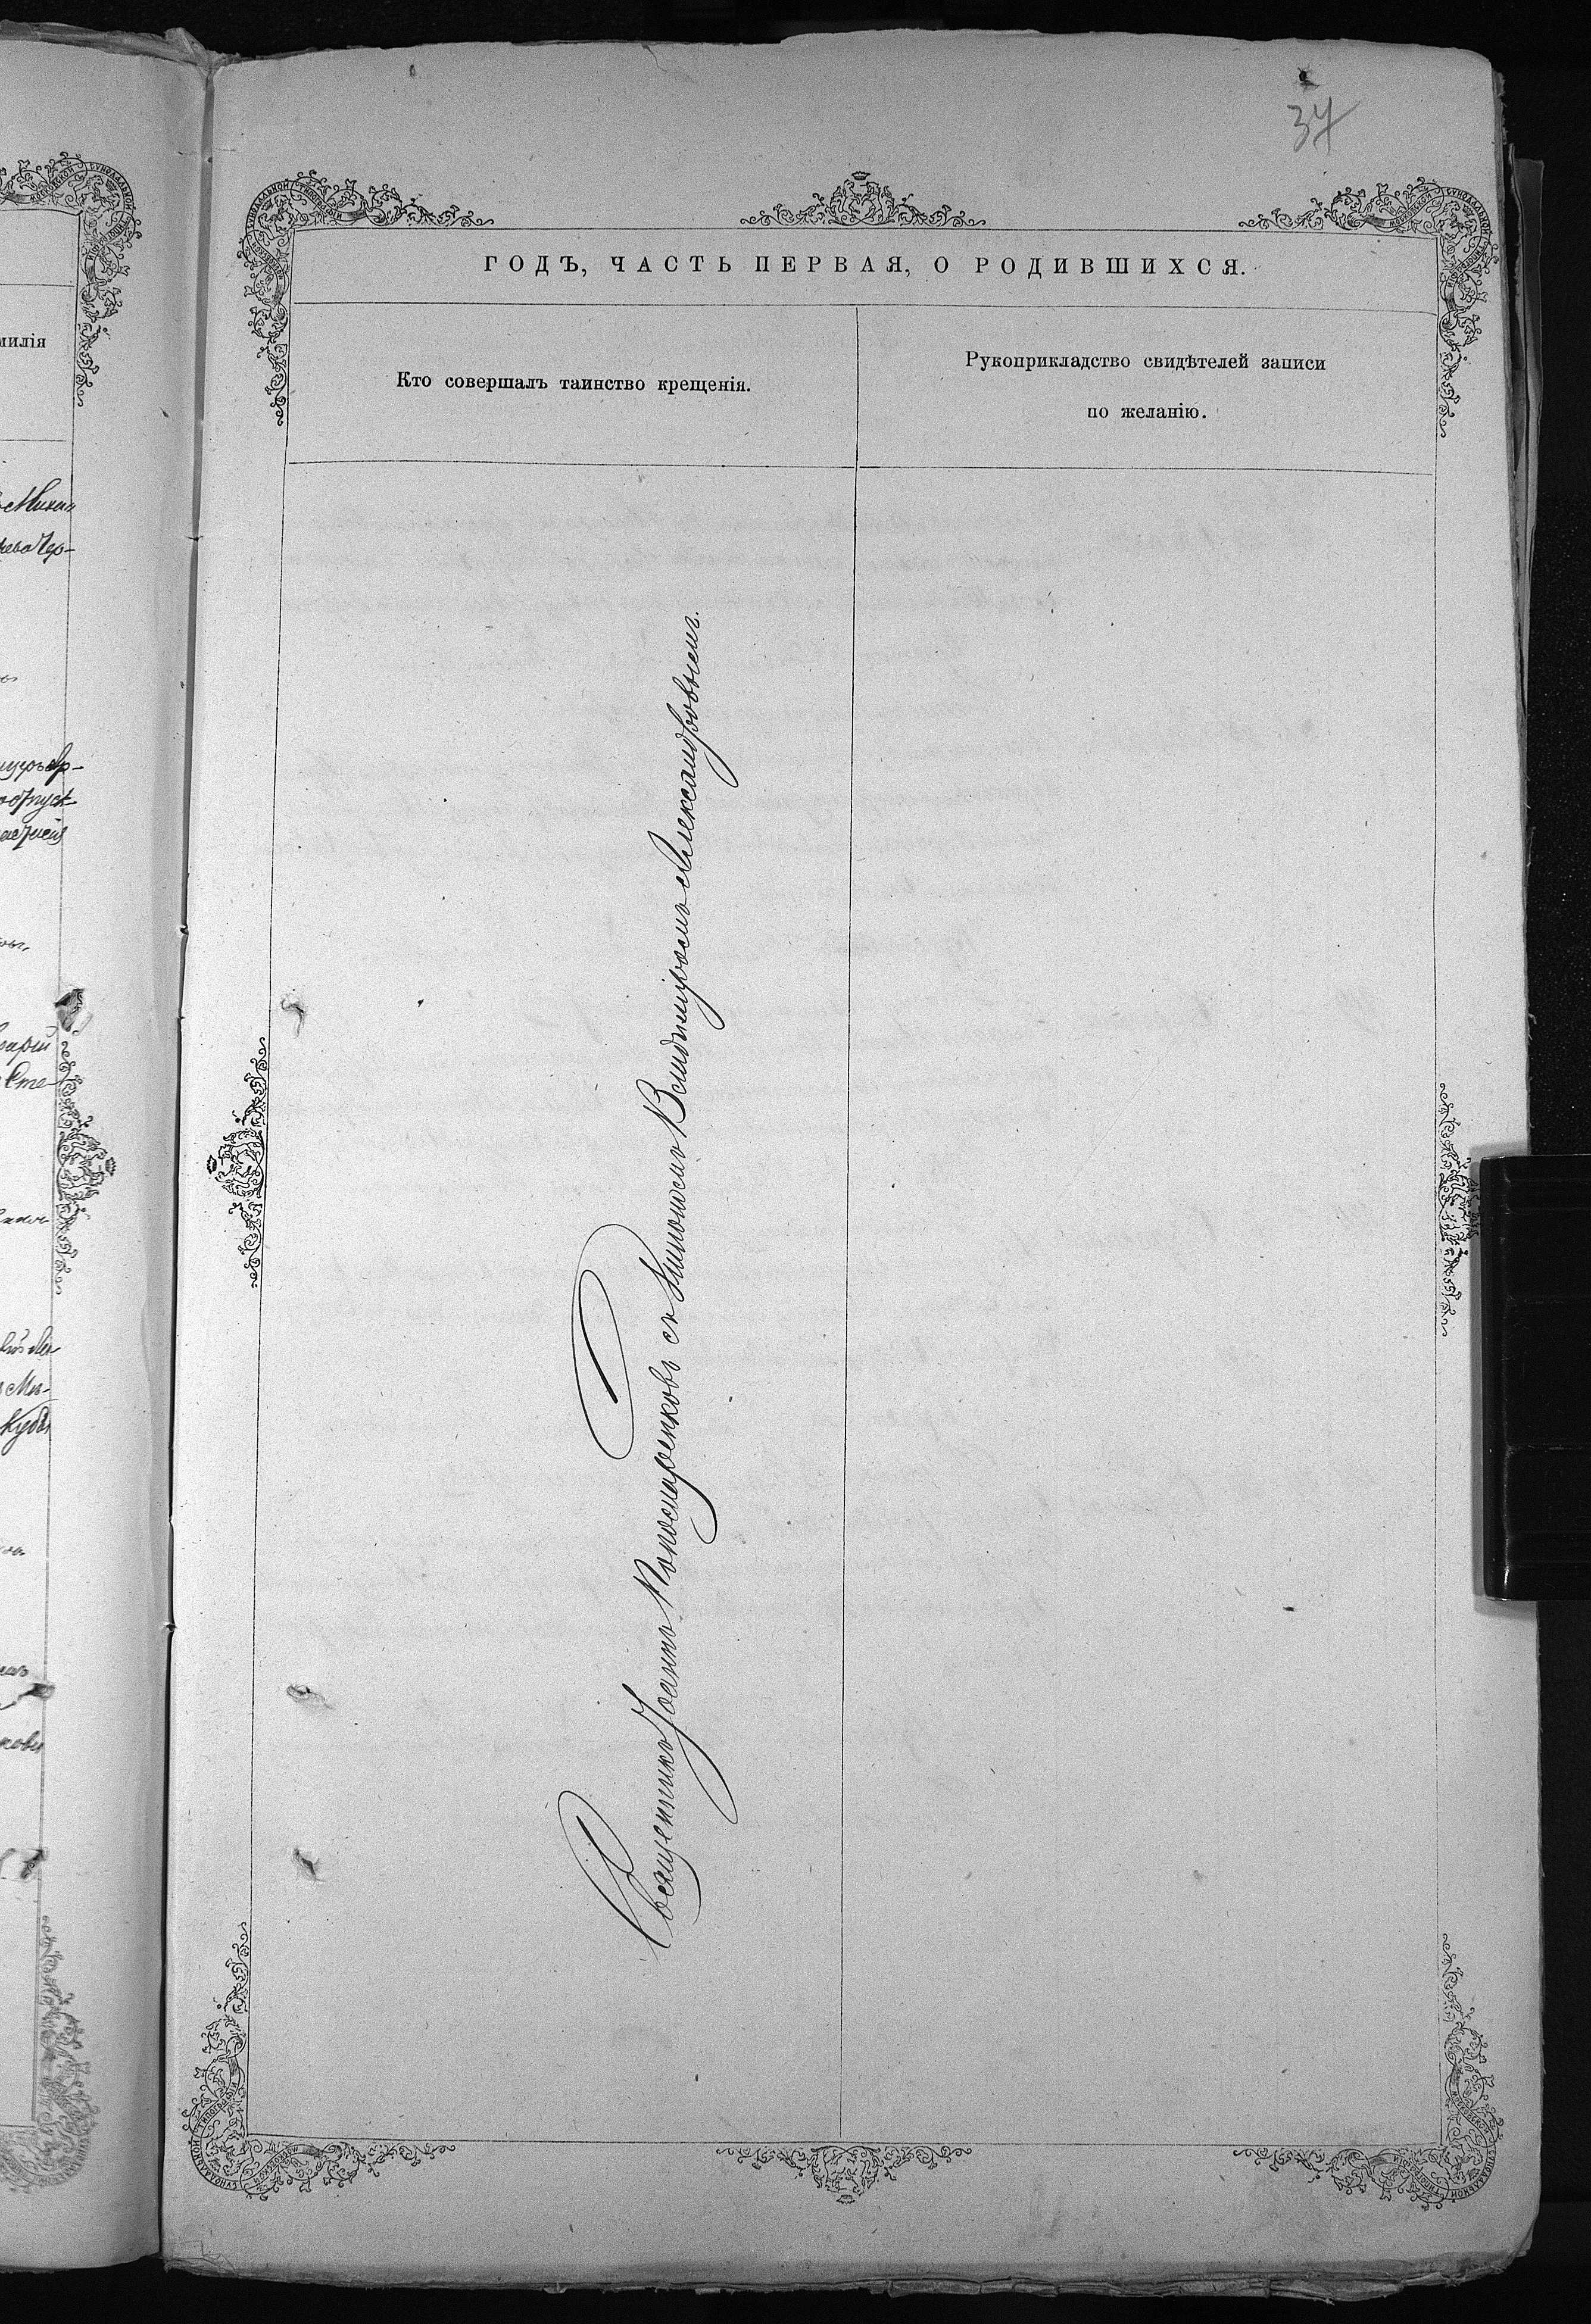 37
ГОДЪ, ЧАСТЬ ПЕРВАЯ, О РОДИВШИХСЯ.
Кто совершалъ таинство крещенія.
Рукоприкладство свидѣтелей записи
по желанію.
Священникъ Іоаннъ Пономаренковъ съ дьякономъ Владиміромъ Александровымъ.
милія